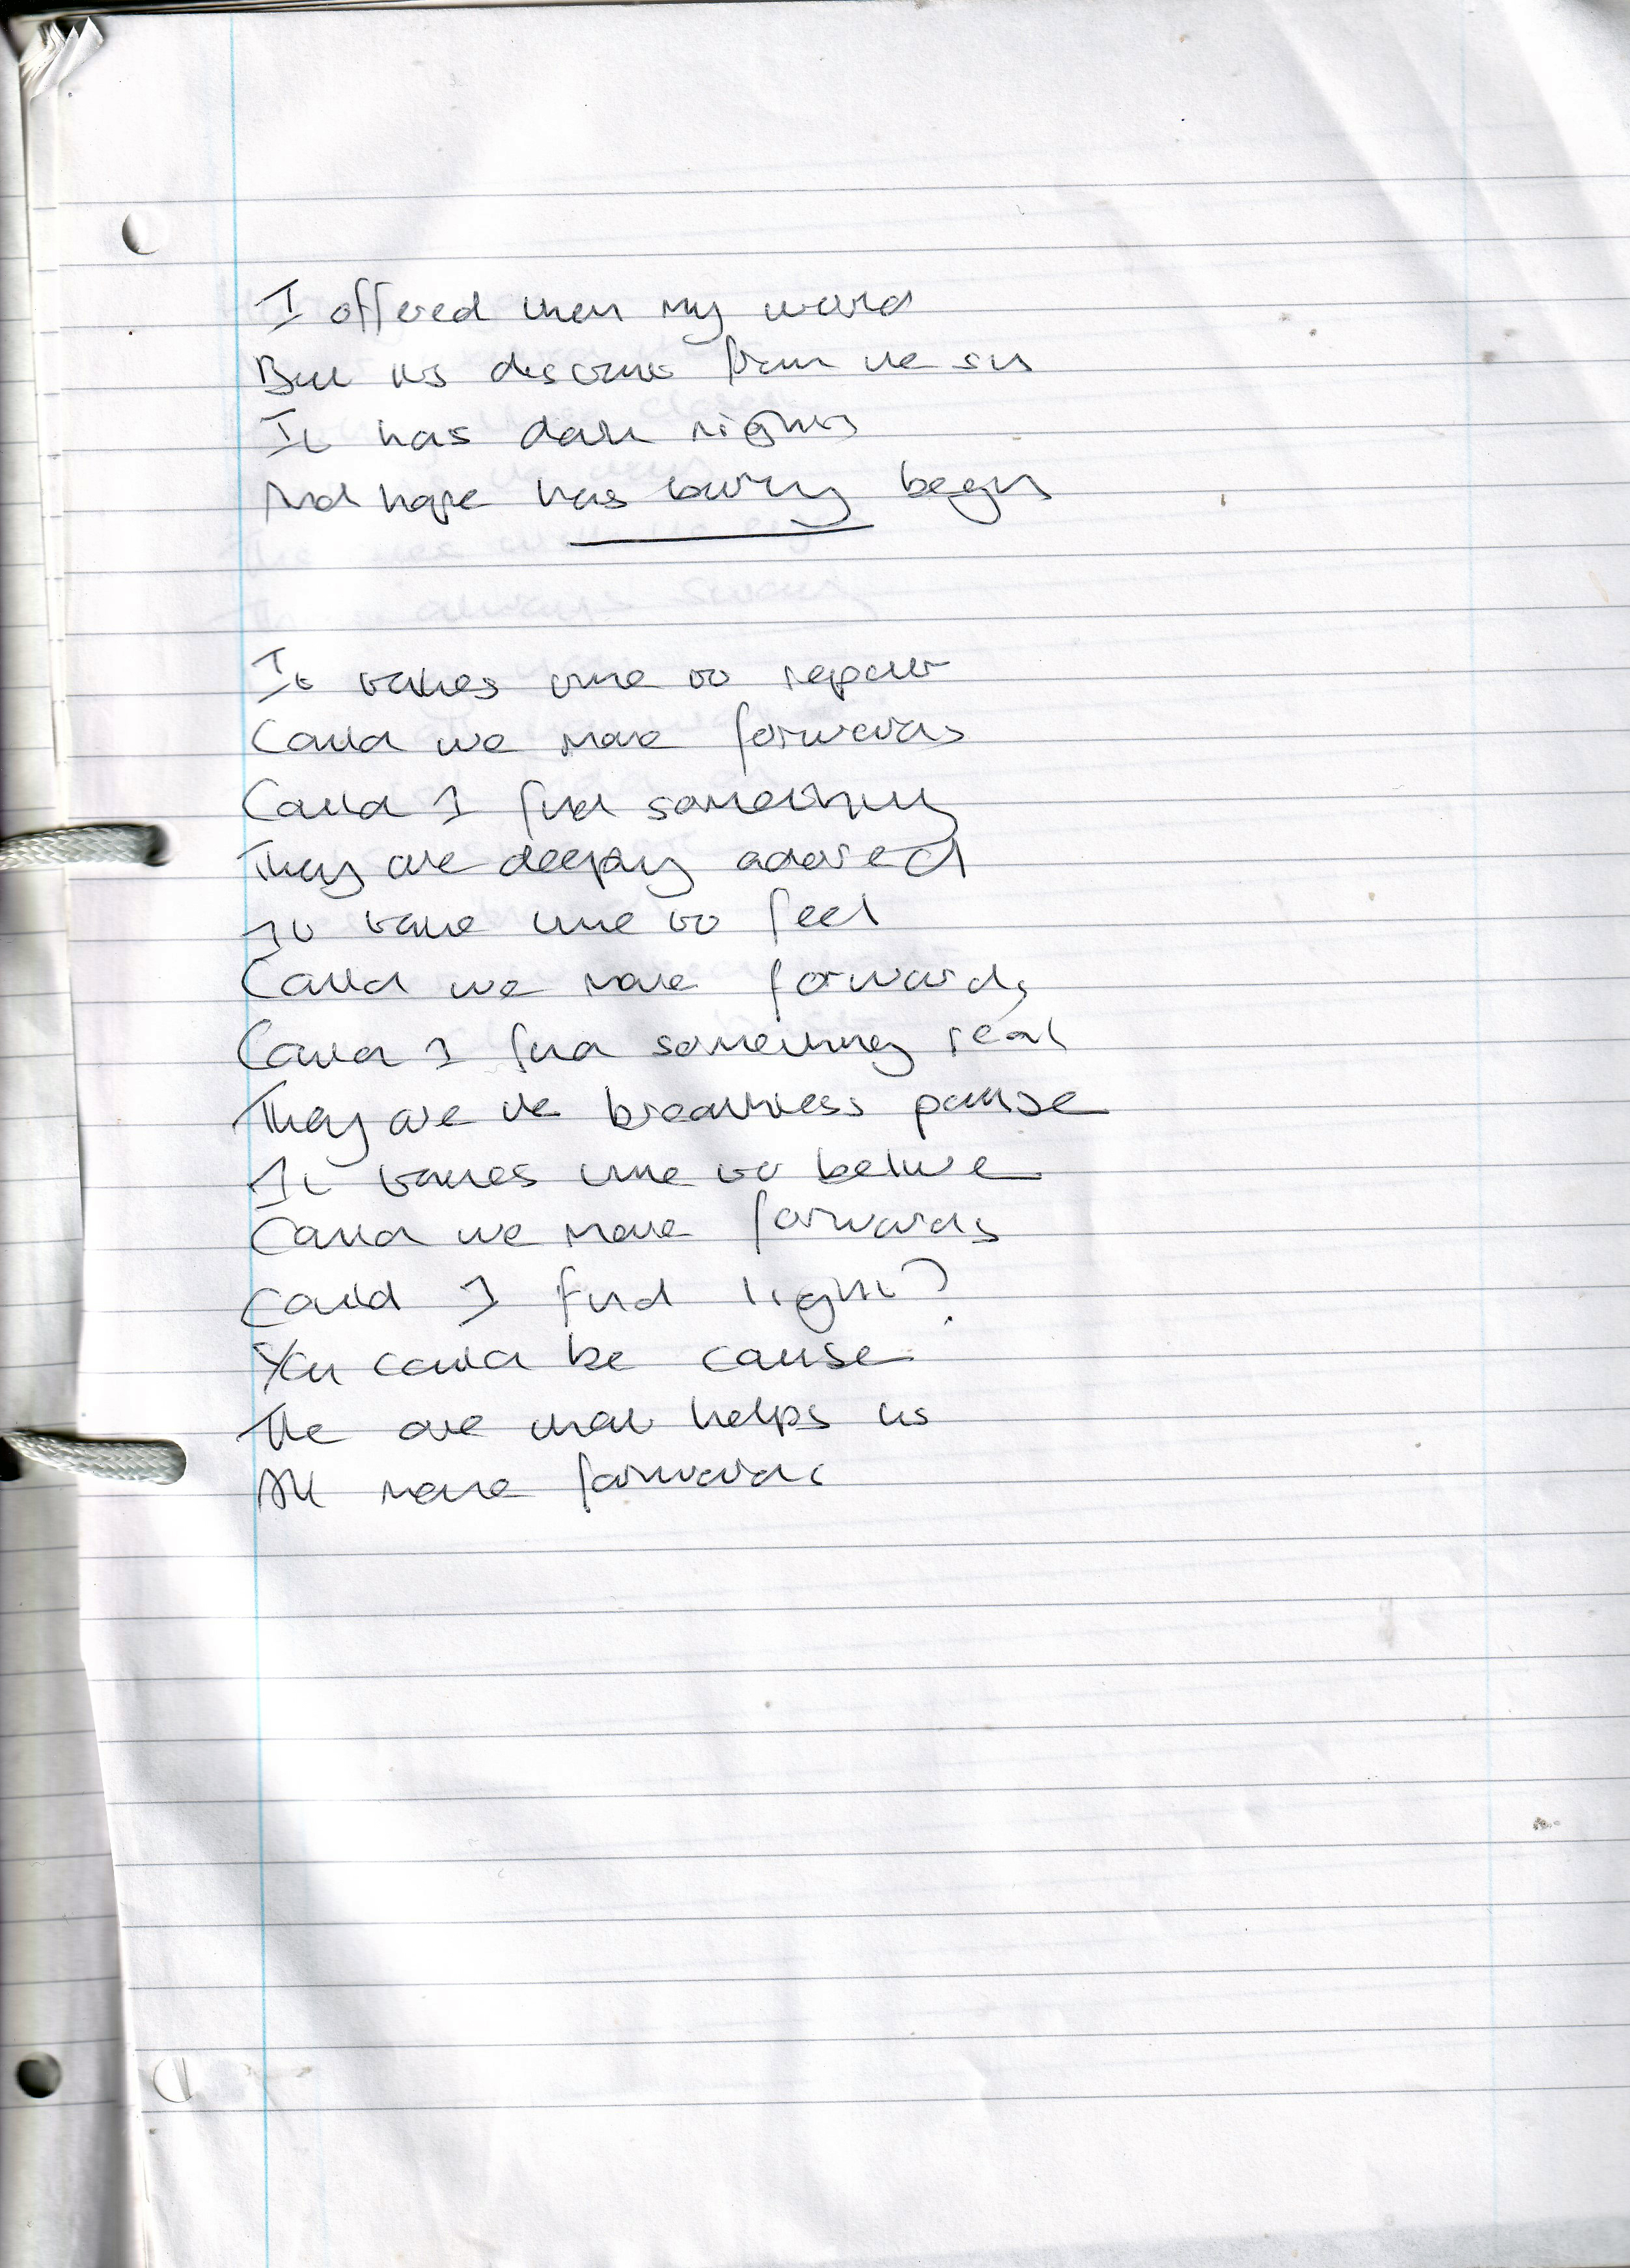 I offered them my world
But its distant from the sun
It has dark nights
And hope has barely begun
It takes time to repair
Could we move forwards
Could I find something
They are deeply adored
It take time to feel
Could we move forwards
Could I find something real
They are the breathless pause
It takes time to believe
Could we move forwards
Could I find light?
You could be cause
The one that helps us
All move forwards